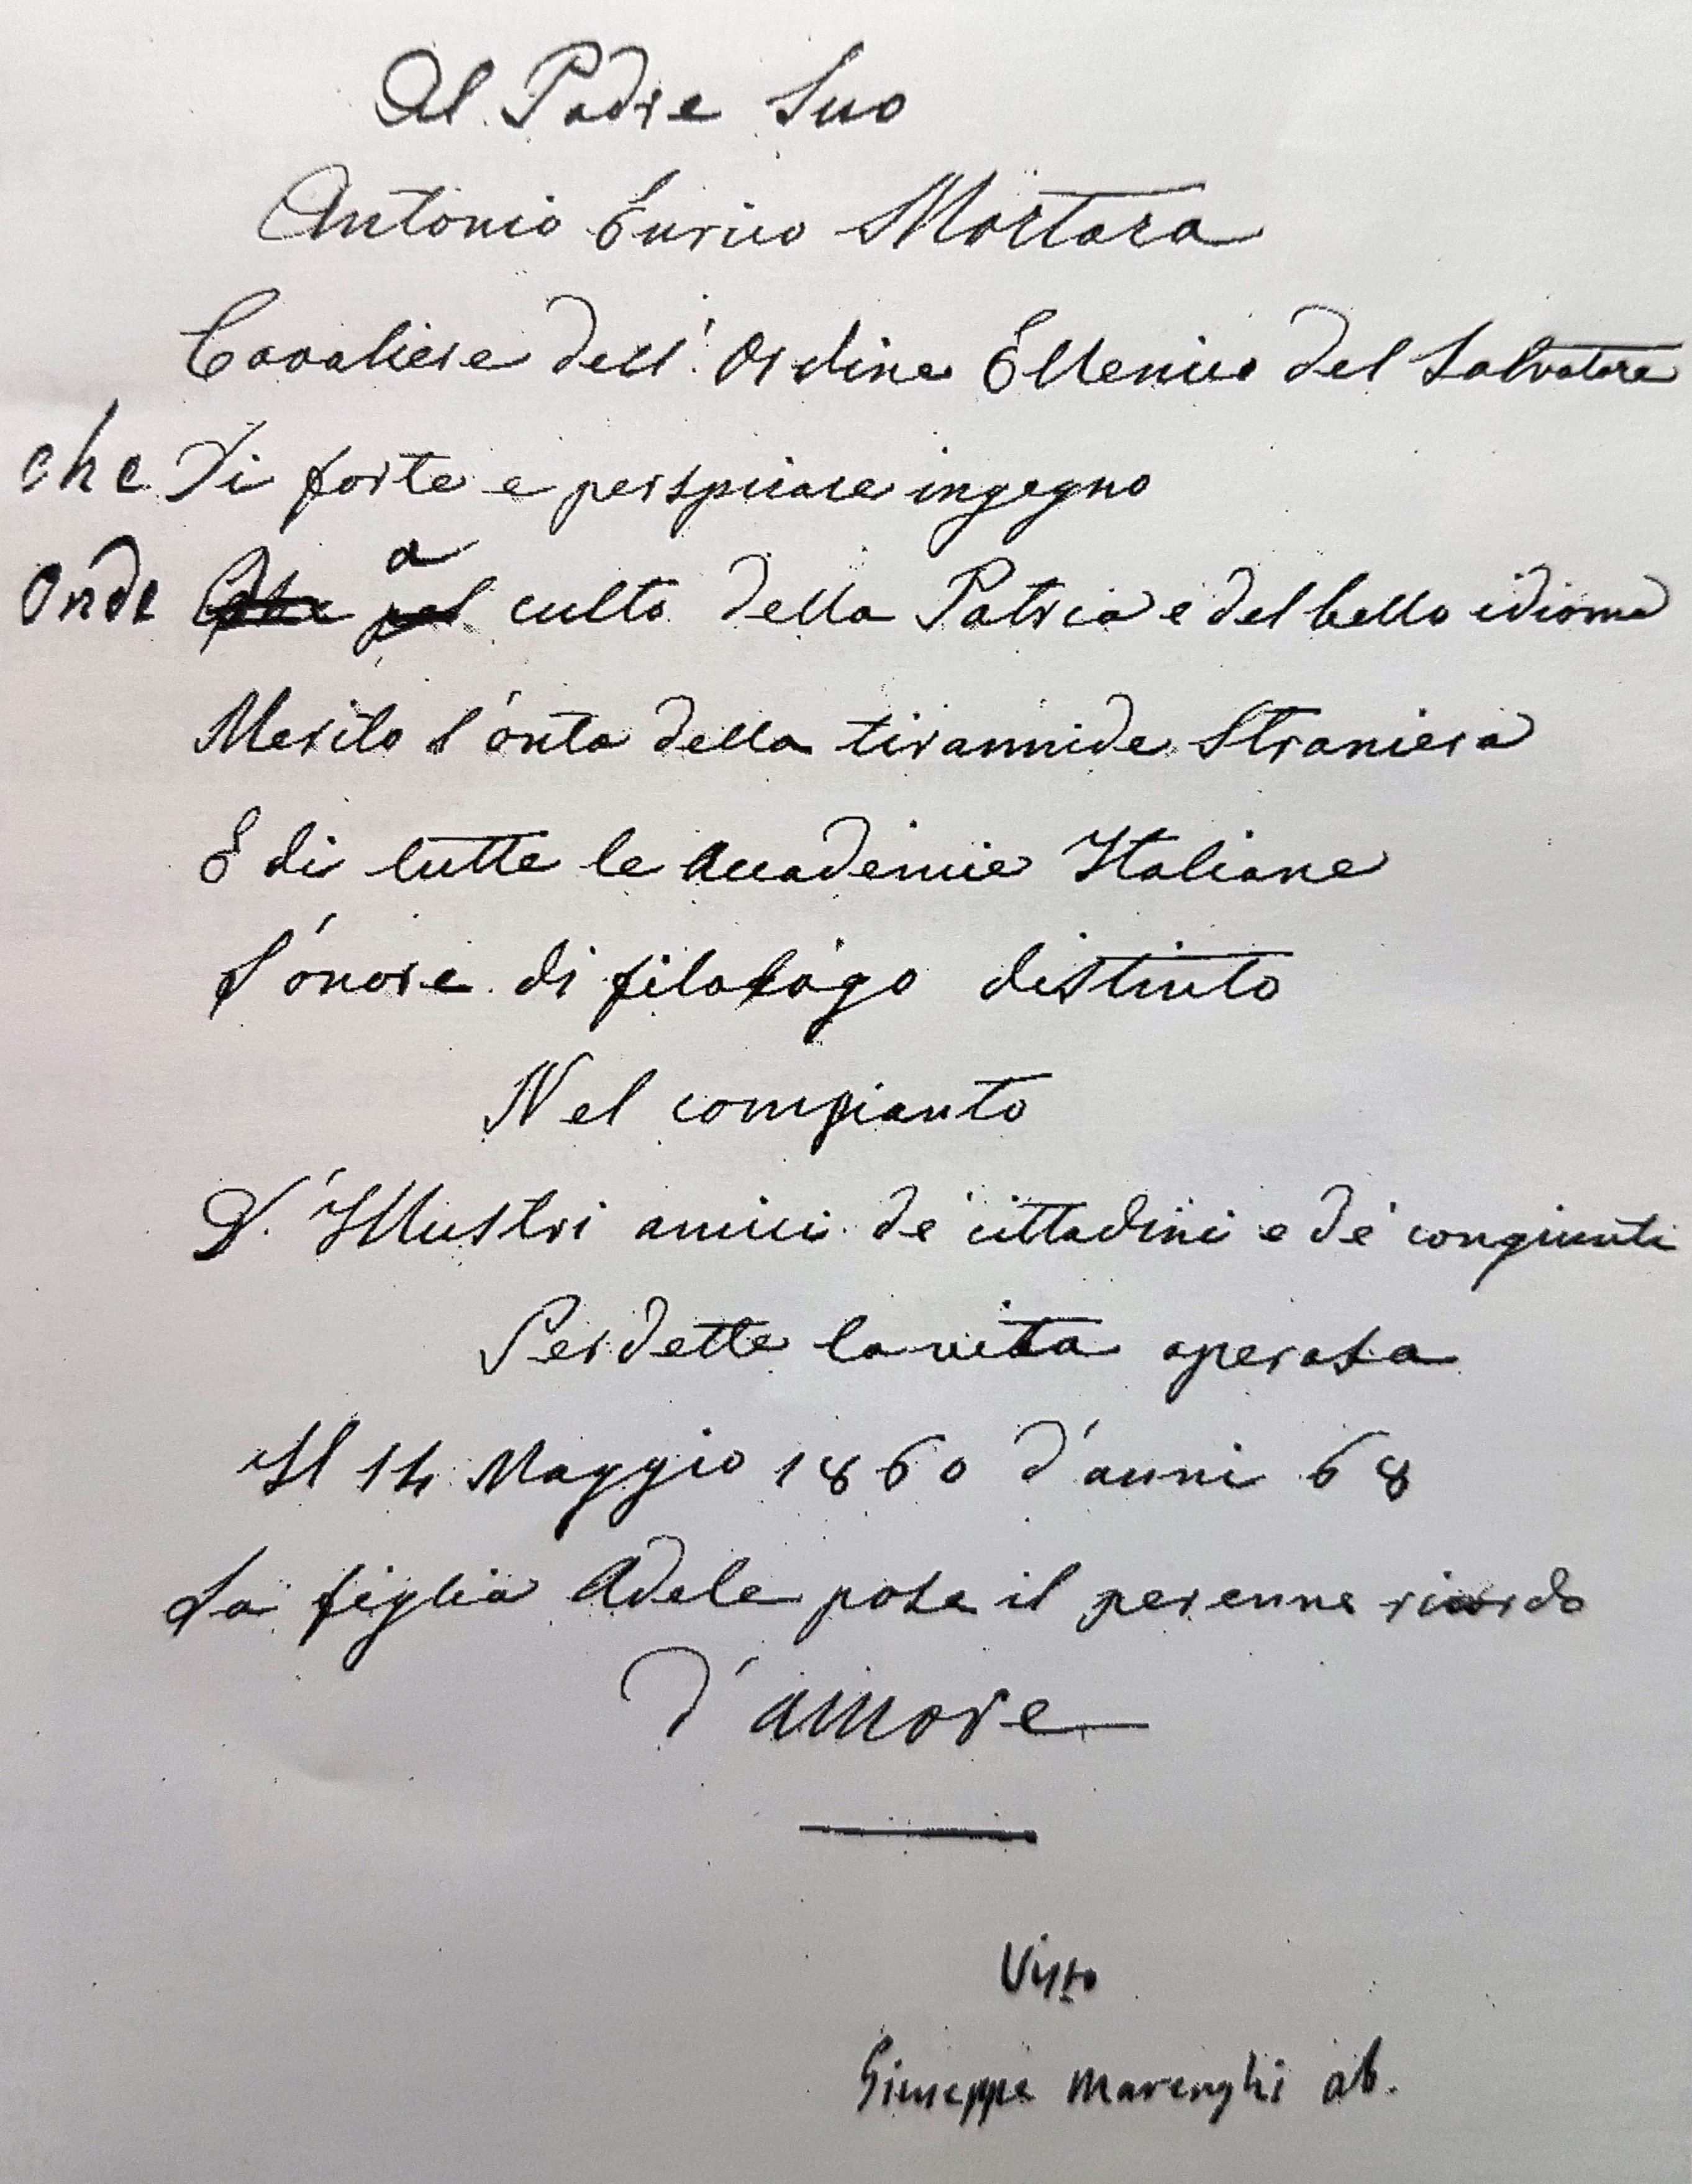 Al Padre Suo
Antonio Enrico Mortara
Cavaliere dell'Ordine Ellenico del Salvatore
che Di forte e perspicace ingegno
a
Onde Che pel culto della Patria e del bello idioma
Meritò l'onta della tirannide Straniera
E di tutte le Accademie Italiane
L'onore di filologo distinto
Nel compianto
D'Illustri amici de' cittadini e de' congiunti
Perdette la vita operosa
Il 14 Maggio 1860 d'anni 68
La figlia Adele pose il perenne ricordo
D'amore
Visto
Giuseppe Marenghi ab.